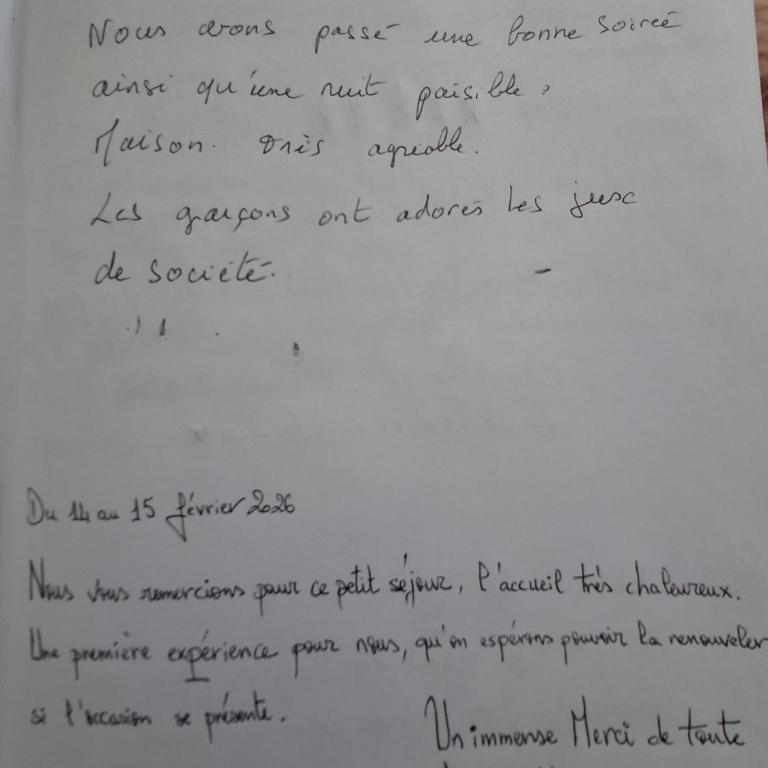 Nous avons passé une bonne soireé
ainsi qu'une nuit paisible,
Maison. très agréable.
Les garçons ont adorés les jeux
de société.
Du 14 au 15 février 2026
Nous vous remercions pour ce petit séjour, l'accueil très chaleureux.
Une première expérience pour nous, qu'on espérons pouvoir la renouveler
si l'occasion se présente.
Un immense Merci de toute